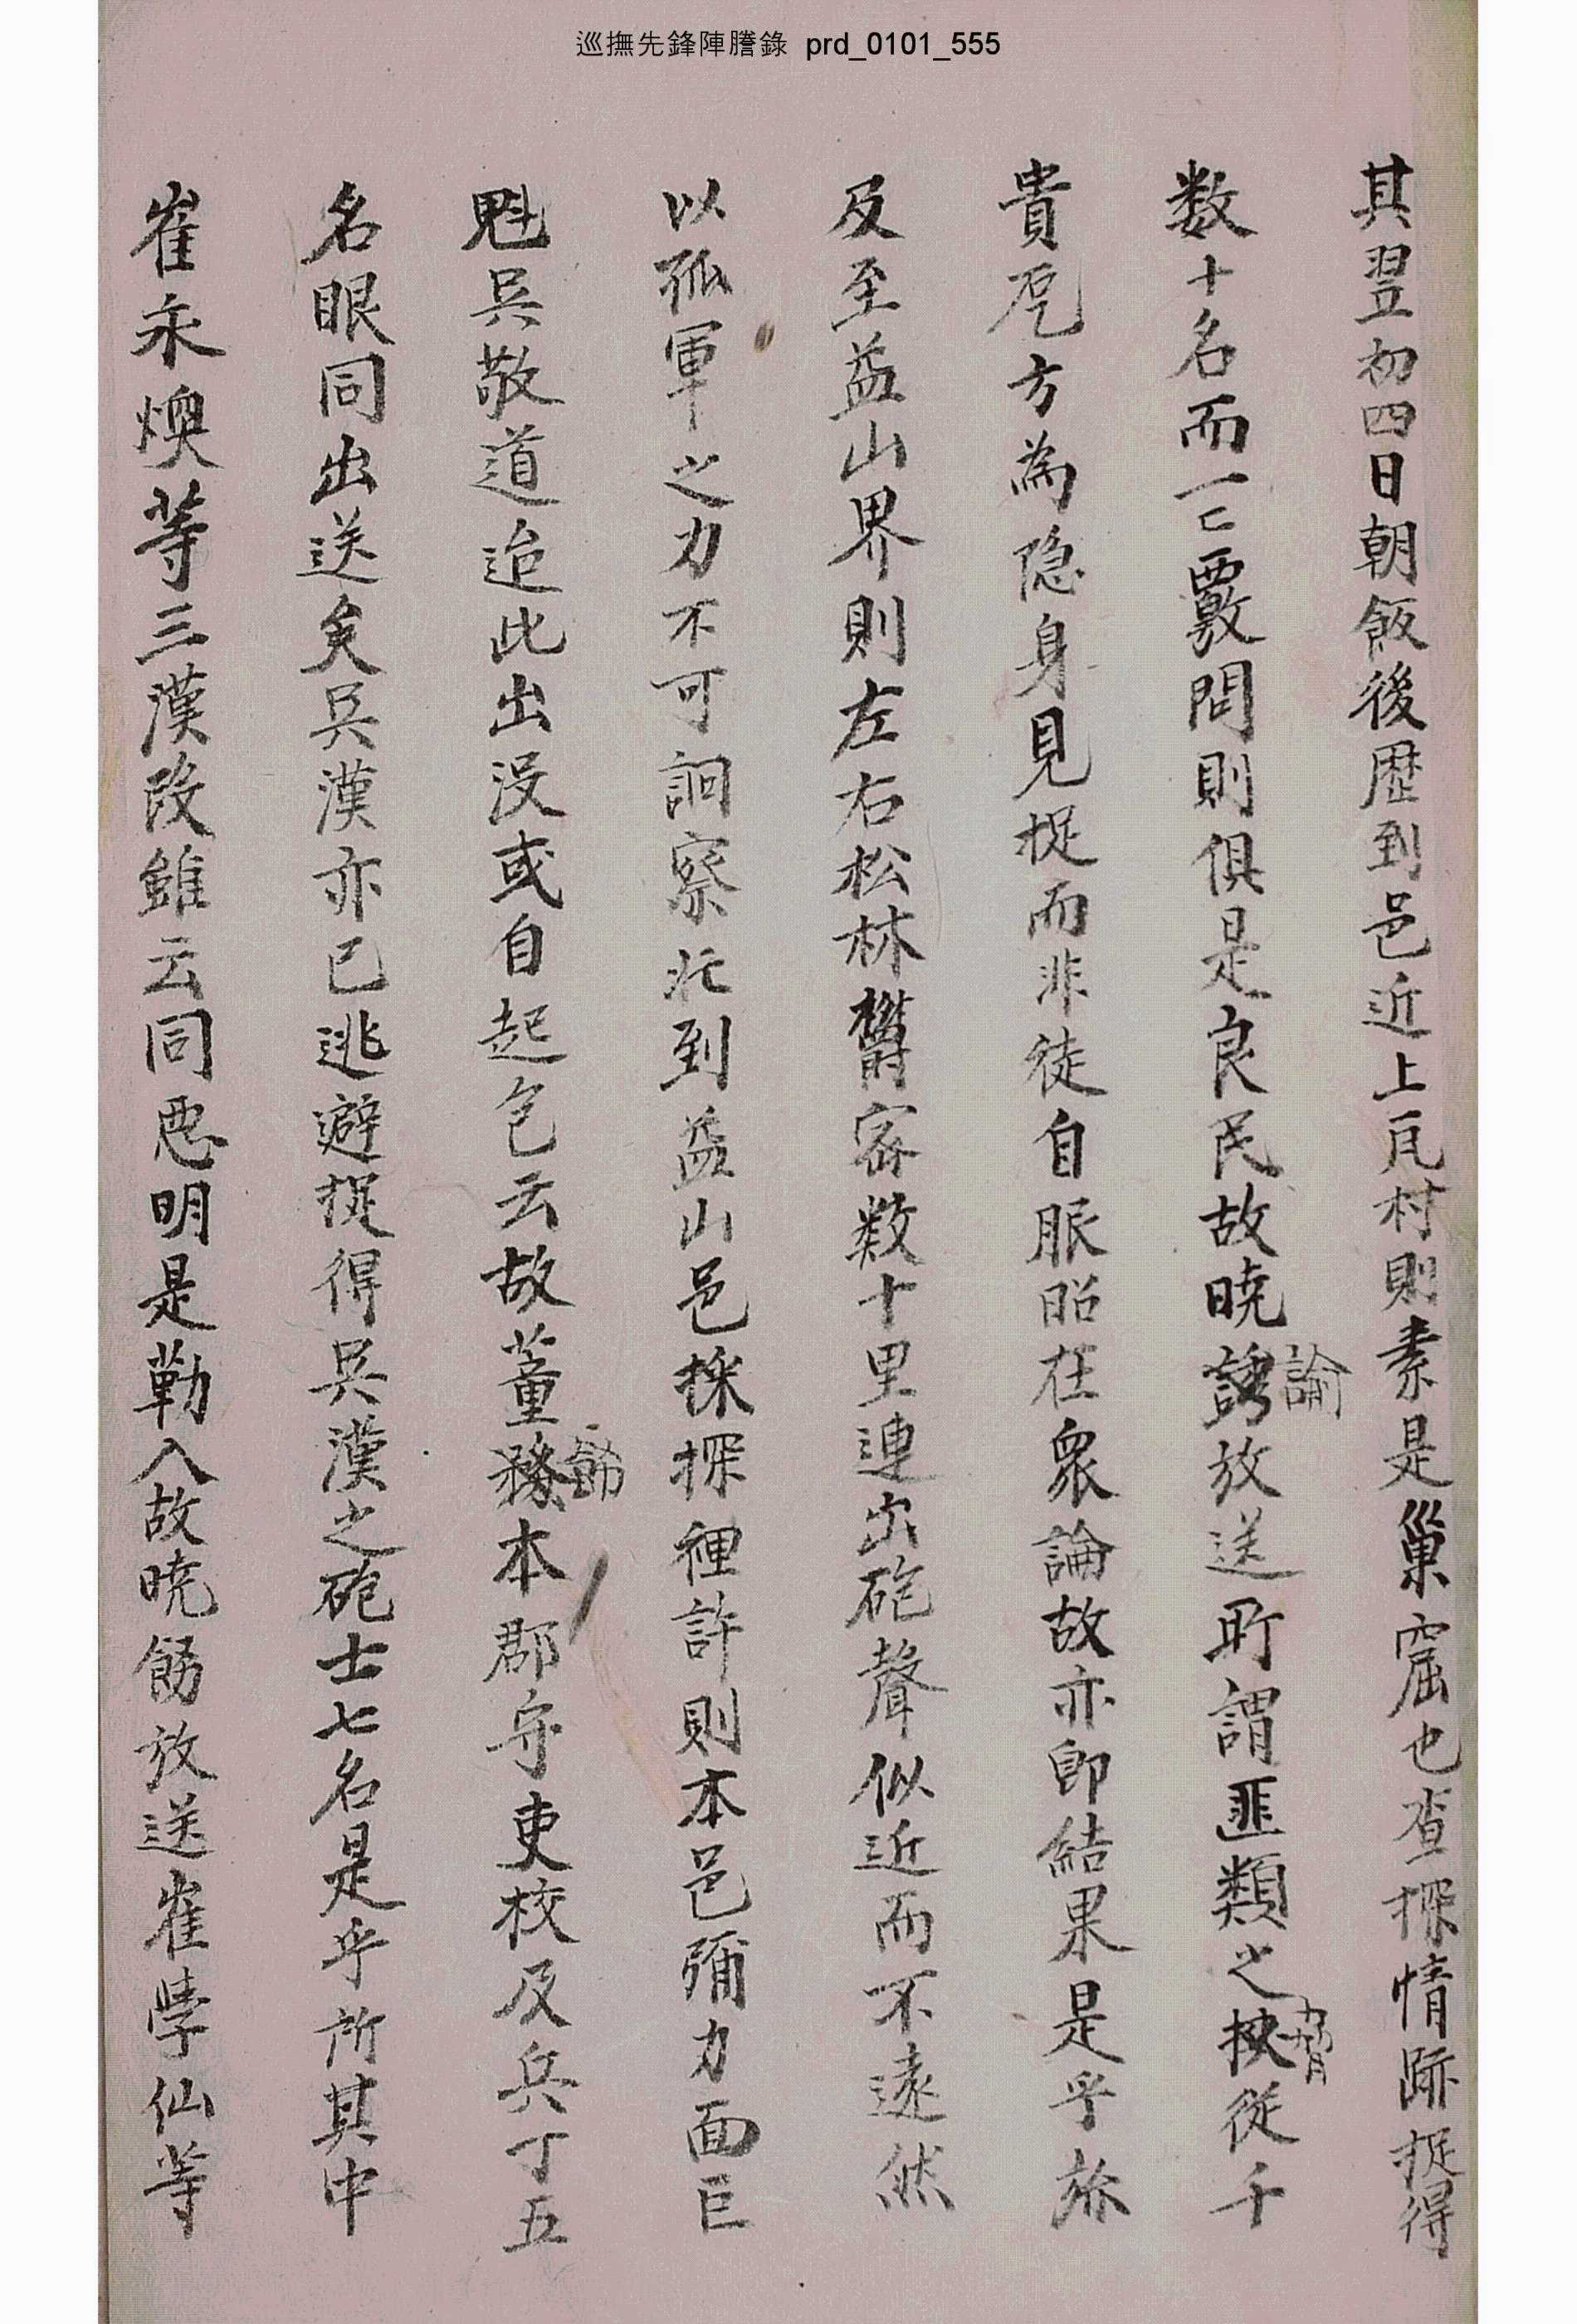 巡撫先鋒陣謄錄 prd_0101_555
其翌初四日朝飯後歷到邑近上瓦村則素是巢窟也查探情跡捉得
数十名而一一覈問則俱是良民故曉諭放送所謂匪類之脅從千
貴 方為隐身見捉而非徒自服昭在衆論故亦即結果是乎旀
及至益山界則左右松林欝密数十里連出砲聲似近而不遠然
以孤軍之力不可詗察 到益山邑採探裡許則本邑彌力面巨
魁吳敬道迨此出没或自起包云故董飭本郡守吏校及兵丁五
名眼同出送矣吳漢亦已逃避捉得吳漢之砲士七名是乎所其中
崔永燠等三漢改雖云同惡明是勒入故曉飭放送崔學仙等